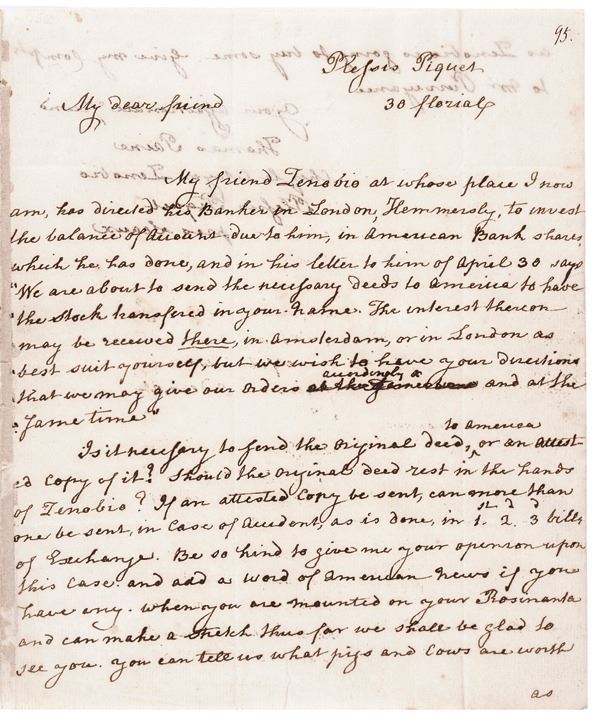 95.
Plessis Piquet
My dear friend 30 florial
My friend Zenobio at whose place I now
am, has directed his Banker in London, Hemmersly, to invest
the balance of Account due to him, in American Bank shares,
which he has done, and in his letter to him of April 30 says
"We are about to send the necessary deeds to America to have
"the Stock transfered in your name. The interest thereon
"may be received there, in Amsterdam, or in London as
"best suit yourself, but we wish to have your directions
"that we may give our orders accordingly and at the
"same time"
Is it necessary to send the original deed, to America or an attest
ed Copy of it? Should the original deed rest in the hands
of Zenobio? If an attested Copy be sent, can more than
one be sent, in case of Accident, as is done, in 1st 2d 3d bills
of Exchange. Be so kind to give me your openion upon
this case and add a word of American News if you
have any. When you are mounted on your Rosinanta
and can make a stretch thus far we shall be glad to
see you. you can tell us what pigs and Cows are worth
as